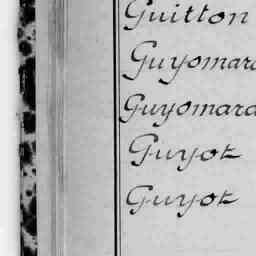 Guitton
Guyomard
Guyomard
Guyot
Guyot